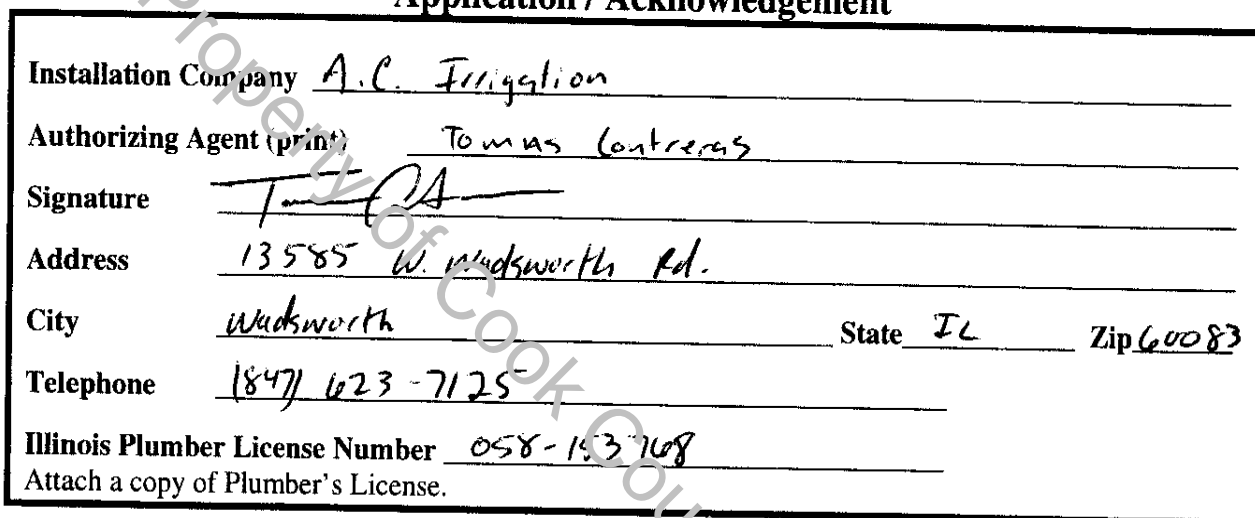 Application / Acknowledgement
Installation Company A.C. Irrigation
Authorizing Agent (print) Tomas Contreras
Signature
Address 13585 W. Wadsworth Rd.
City Wadsworth State IL Zip 60083
Telephone (847) 623-7125
Illinois Plumber License Number 058-153768
Attach a copy of Plumber's License.
Property of Cook Cou